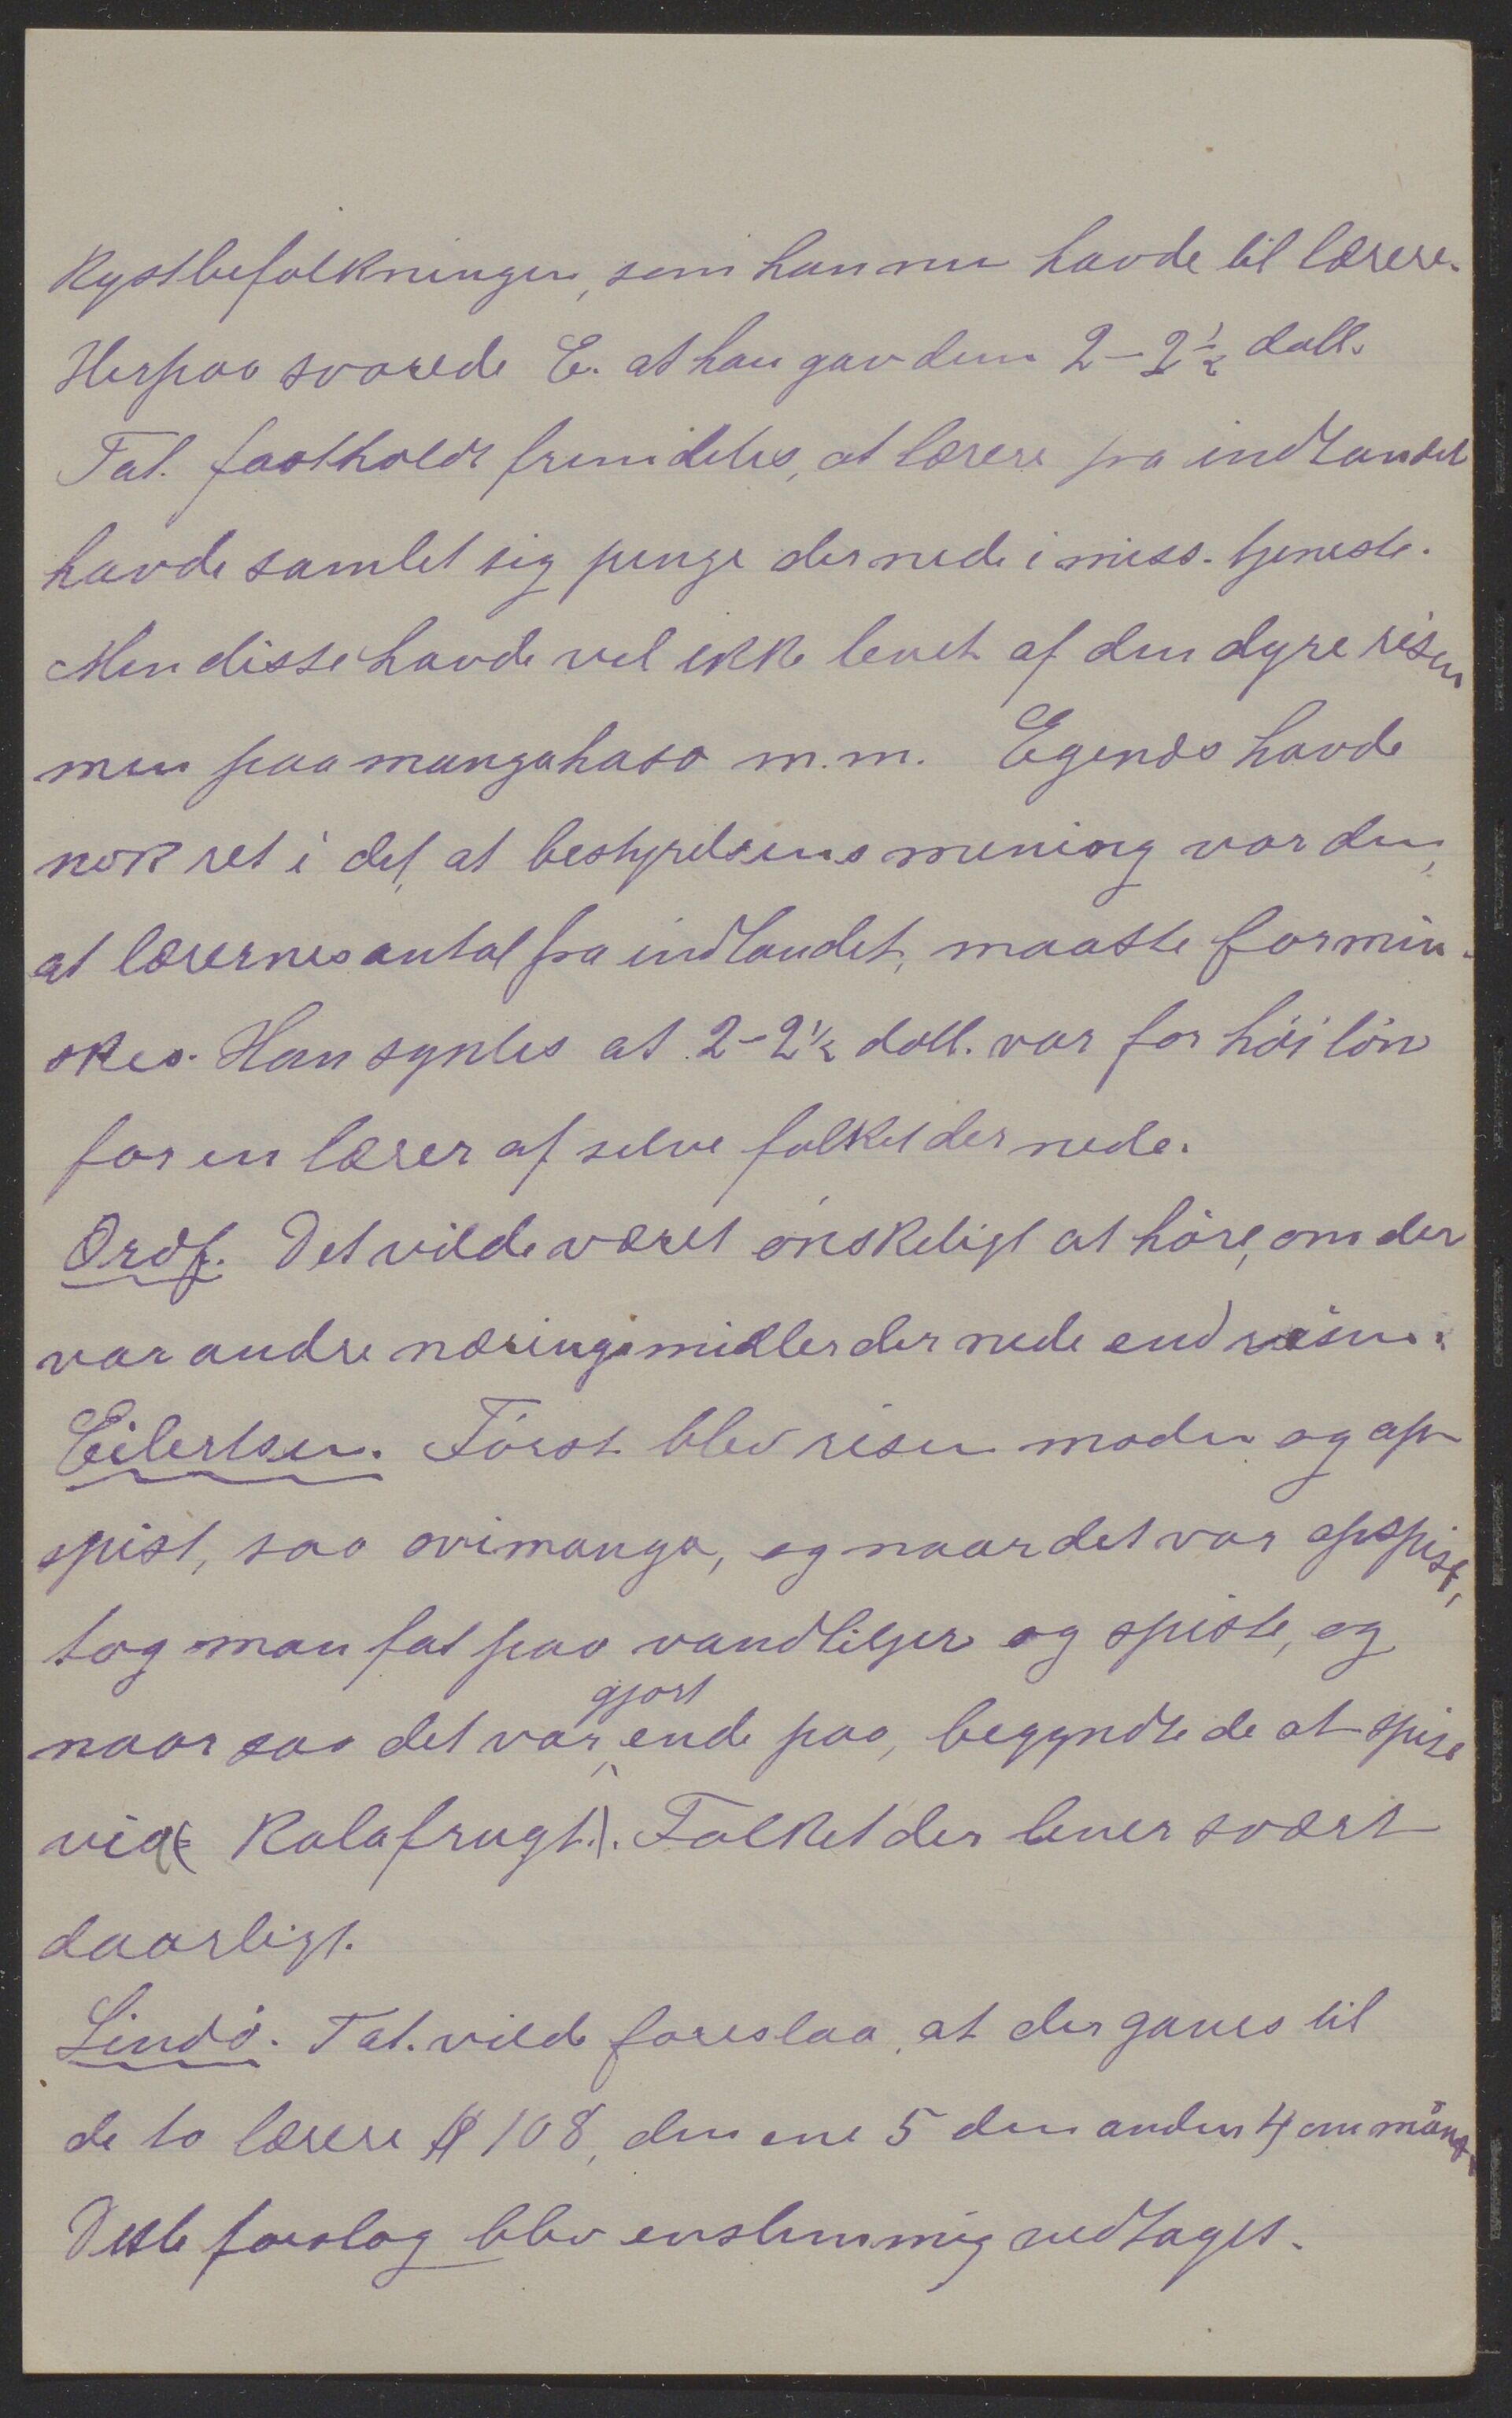 Kystbefolkningen, som han nu havde til lærere.
Herpaa svarede E. at han gav dem 2-2½ doll.
Tal. fastholdt fremdeles, at lærere fra indlandet
havde samlet sig penge der nede i miss. tjeneste.
Men disse havde vel ikke levet af den dyre risen
men paa mangahaso m.m. Egenæs havde
nok ret i det, at bestyrelsens mening var den,
at lærernes antal fra indlandet, maatte formin-
skes. Han syntes at 2-2½ doll. var for höi lön
for en lærer af selve folket der nede.
Ordf. Det vilde været önskeligt at höre, om der
var andre næringsmidler der nede end risen.
Eilertsen. Först blev risen moden og op-
spist, saa ovimanga, og naar det var opspist,
tog man fat paa vandliljer og spiste, og
naar saa det var gjort ende paa, begyndte de at spise
via( Kalafrugt.). Folket der lever svært
daarligt.
Lindö. Tal. vilde foreslaa, at der gaves til
de to lærere $ 108, den ene 5 den anden 4 om mån.
Dette forslag blev enstemmig vedtaget.